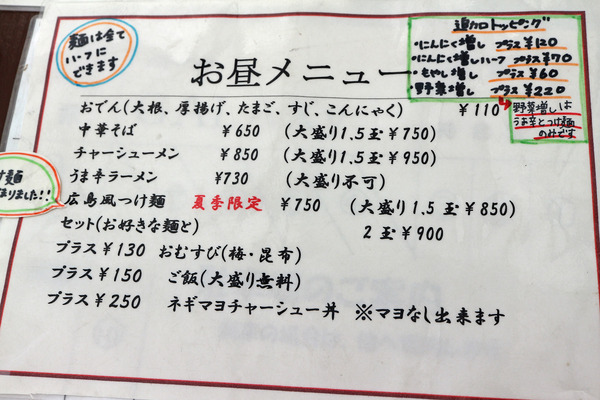 麺は全て
ハーフに
できます
追加トッピング
・にんにく増し プラス ¥120
・にんにく増しハーフ プラス ¥70
・もやし増し プラス ¥60
・野菜増し プラス ¥220
野菜増しは
うま辛とつけ麺
のみです
お昼メニュー
おでん(大根、厚揚げ、たまご、すじ、こんにゃく) ¥110
中華そば ¥650 (大盛り1.5玉¥750)
チャーシューメン ¥850 (大盛り1.5玉¥950)
うま辛ラーメン ¥730 (大盛り不可)
け麺
まりました!!
広島風つけ麺 夏季限定 ¥750 (大盛り1.5玉¥850)
2玉¥900
セット(お好きな麺と)
プラス¥130 おむすび(梅・昆布)
プラス¥150 ご飯(大盛り無料)
プラス¥250 ネギマヨチャーシュー丼 ※マヨなし出来ます